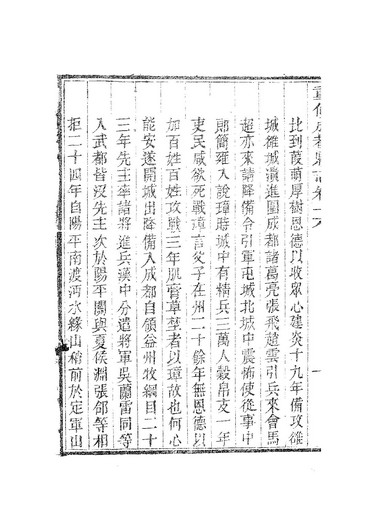 重修成都縣志卷十六
比到葭萌厚樹恩德以收眾心建炎十九年備攻雒
城雒城潰進圍成都諸葛亮張飛趙雲引兵來會馬
超亦來請降備令引軍屯城北城中震怖使從事中
郎簡雍入說璋時城中有精兵三萬人穀帛支一年
吏民咸欲死戰璋言父子在州二十餘年無恩德以
加百姓百姓攻戰三年肌膏草埜者以璋故也何心
能安遂開城出降備入成都自領益州牧綱目二十
三年先主率諸將進兵漢中分遣將軍吳蘭雷同等
入武都皆沒先主次於陽平關與夏侯淵張郃等相
拒二十四年自陽平南渡沔水緣山稍前於定軍山